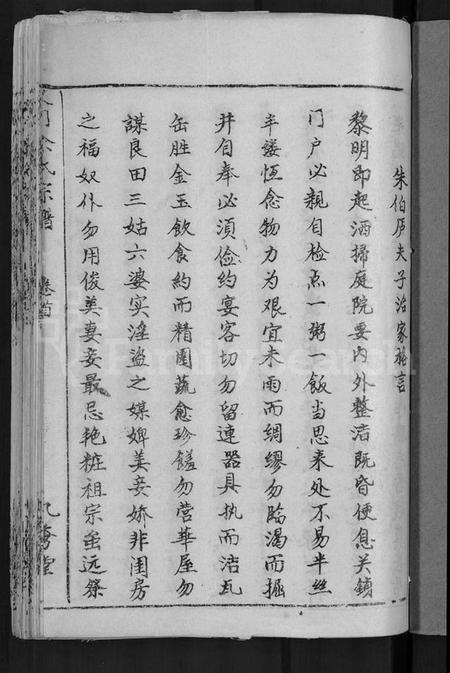 朱伯庐夫子治家格言
黎明即起洒掃庭院要内外整洁既昏便息关鎖
门户必親自检点一粥一飯当思来处不易半丝
半縷恆念物力为艰宜未雨而綢繆勿临渴而掘
井自奉必須俭约宴客切勿留連器具执而洁瓦
缶胜金玉飲食約而精園蔬愈珍饈勿营華屋勿
謀良田三姑六婆实淫盗之媒婢美妾娇非闺房
之福奴仆勿用俊美妻妾最忌艳粧祖宗虽远祭
氏宗譜 卷首
堂
FamilySearch